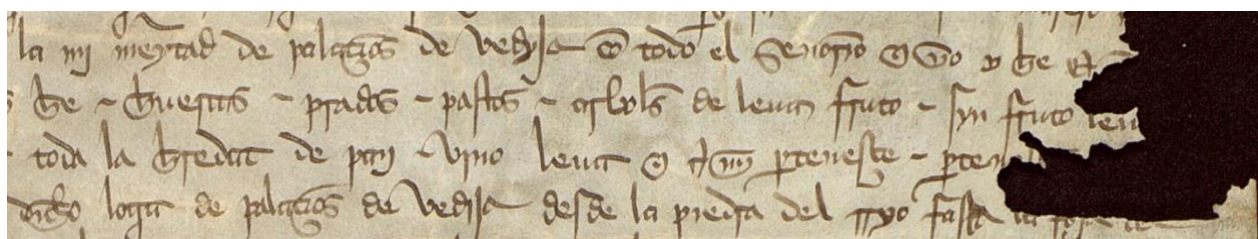 la mi meytad de palaçios de vedija cõ todo el señorio q̃ yo y he
he ~ huertas ~ prados ~ pastos ~ arbols de leuar fruto ~ syn fruto leu
toda la hredat de pan ~ vino leuar q̃ a mi pertenesçe ~ perten
dicho logar de palaçios de vedija desde la piedra del rryo fasta la